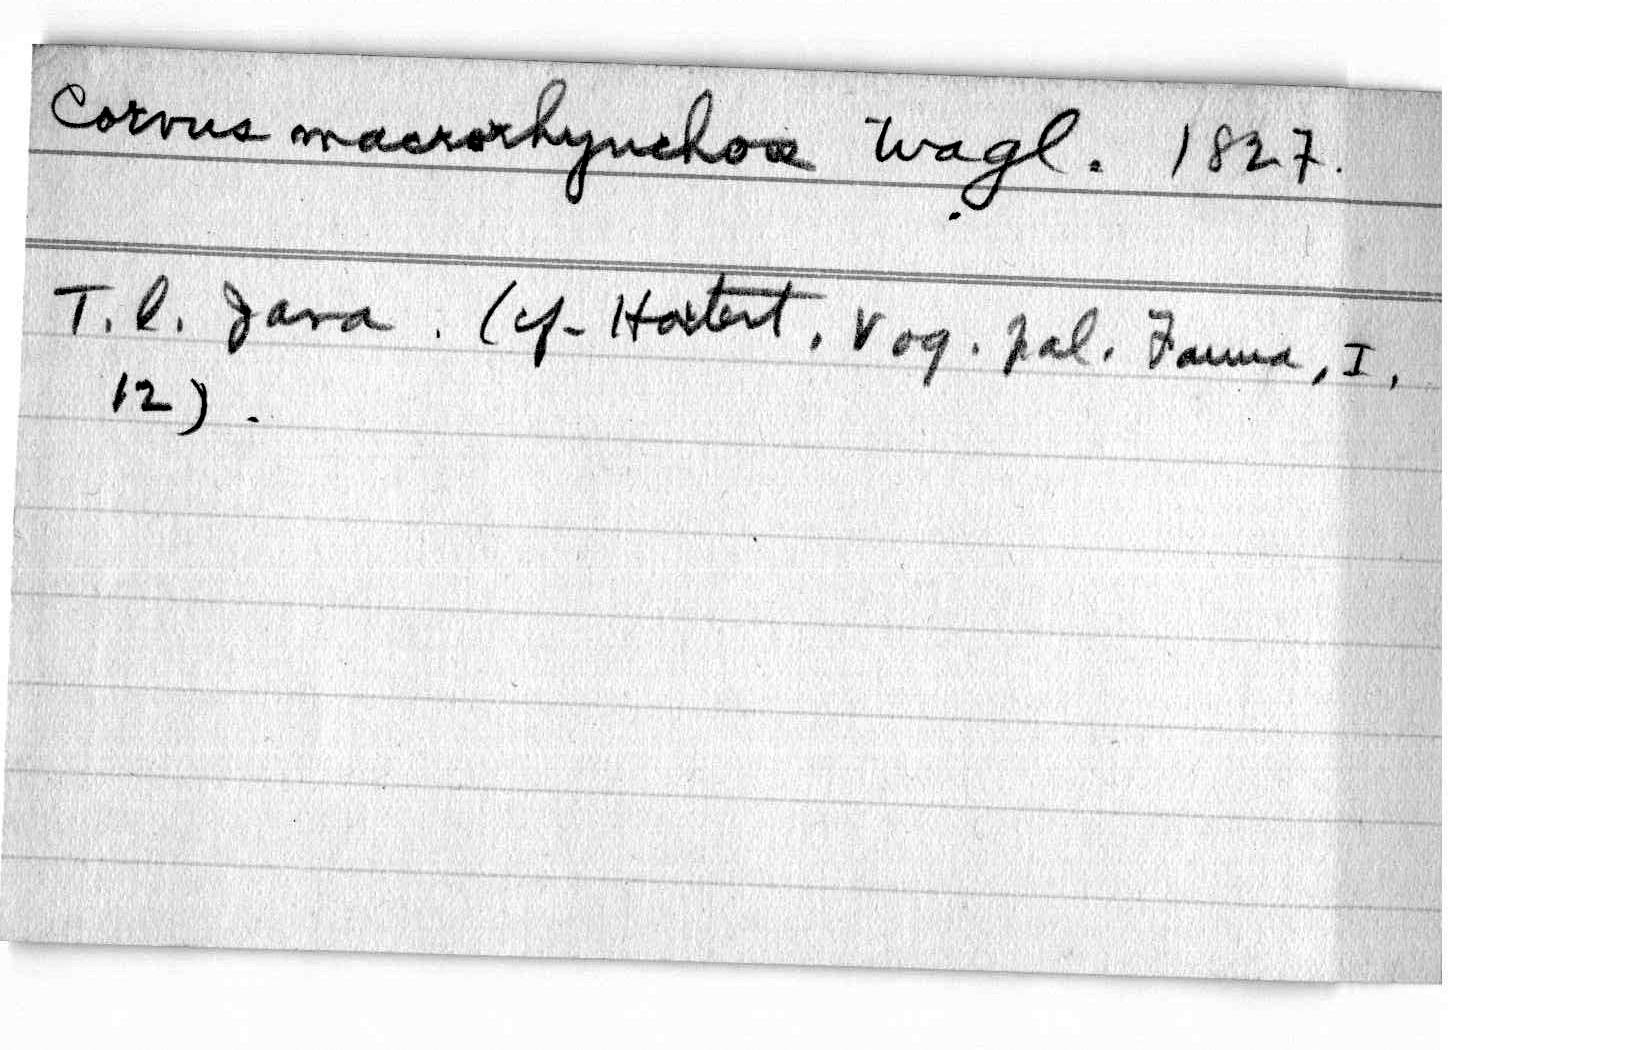 Corvus macrorhynchos Wagl. 1827.
T. l. Java. (cf. Hartert, Vog. pal. Fauna, I,
12).